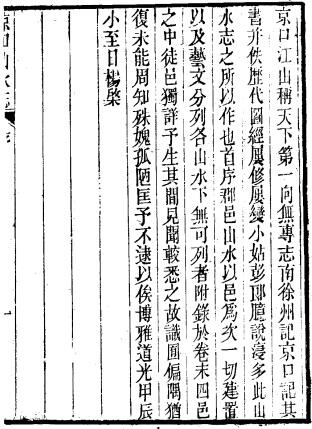 京口江山稱天下第一向無專志南徐州記京口記其
書并佚歷代圖經屢修屢變小姑彭郎臆說寖多此山
水志之所以作也首序郡邑山水以邑爲次一切建置
以及藝文分列各山水下無可列者附錄於卷末四邑
之中徒邑獨詳予生其間見聞較悉之故識囿偏隅猶
復未能周知殊媿孤陋匡予不逮以俟博雅道光甲辰
小至日楊棨
京口山水志
序
一